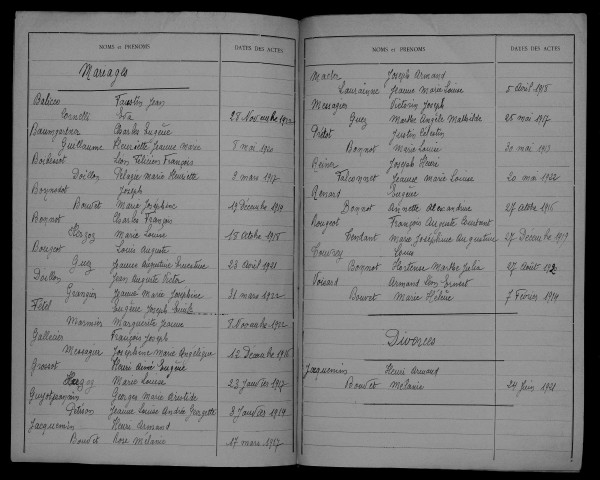 NOMS et PRÉNOMS DATES DES ACTES
Mariages
Faustin Jean
28 Novembre
Baumgartner Charles Eugène
Guillaume Henriette Jeanne Marie 8 mai 1920
Léon Félicien François
Doillon Marie Henriette 2 mars 1917
Bonnodot Joseph
Bouvet Marie Joséphine 17 Décembre 1919
Bonnot Charles François
Herzog Marie Louise 18 Octobre 1918
Bourgeot Louis Auguste
Guez Jeanne Augustine Ernestine 23 Avril 1921
Doillon Jean Auguste Victor
Grangier Jeanne Marie Joséphine 31 mars 1922
Fétel Eugène Joseph Emile
Marmier Marguerite Jeanne 8 Novembre 1922
Gallecier François Joseph
Messager Joséphine Marie Angélique 12 Décembre 1916
Grosset Henri Aimé Eugène
Marie Louise 23 Janvier 1917
Georges Marie Aristide
Jeanne Louise Andrée Georgette 3 Janvier 1919
Jacquemin Henri Armand
Bouvet Rose Mélanie 17 mars 1917
NOMS et PRÉNOMS DATES DES ACTES
Joseph Armand
Jeanne Marie Louise 5 Avril 1918
Messager Victorin Joseph
Guez Marthe Angèle Mathilde 26 mai 1917
Justin Célestin
Bonnot Marie Louise 20 mai 1913
Joseph Henri
Falconnet Jeanne Marie Louise 20 mai 1922
Renard Eugène
Bonnot Annette Alexandrine 27 Octobre 1916
Rougeot François Auguste
Marie Joséphine Augustine 27 Décembre 1919
Louis
Bonnot Hortense Marthe Julia 27 Août
Voisard Armand Léon Ernest
Bouvet Marie Hélène 7 Février 1914
Divorces
Jacquemin Henri Armand
Bouvet Mélanie 24 Juin 1921